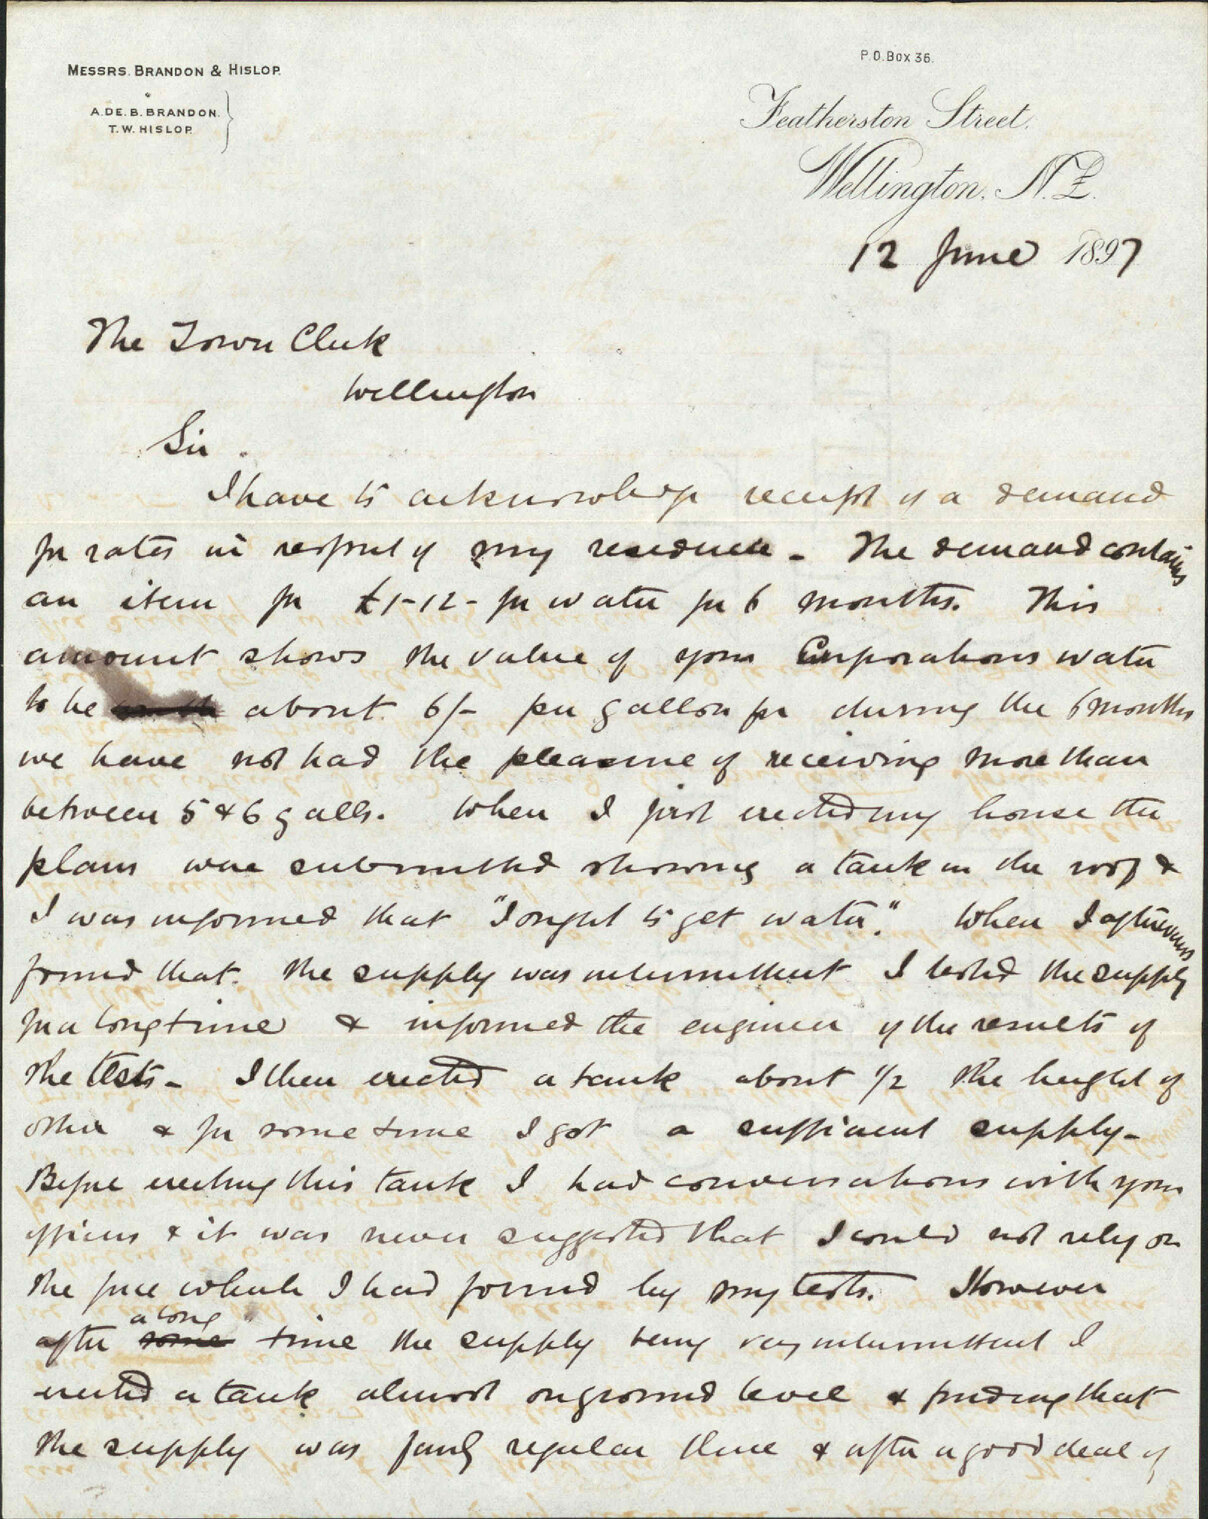 MESSRS. BRANDON & HISLOP.
A. DE. B. BRANDON.
T. W. HISLOP.
P.O. Box 36.
Featherston Street,
Wellington, N.Z.
12 June 1897
The Town Clerk
Wellington
Sir.
I have to acknowledge receipt of a demand
for rates in respect of my residence - The demand contains
an item for £1-12- for water for 6 months. This
amount shows the value of your Corporations water
to be about 6/- per gallon for during the 6 months
we have not had the pleasure of receiving more than
between 5 & 6 galls. When I first erected my house the
plans were submitted showing a tank in the roof &
I was informed that "I ought to get water." When I afterwards
found that the supply was intermittent I tested the supply
for a long time & informed the engineer of the results of
the tests - I then erected a tank about 1/2 the height of
other & for some time I got a sufficient supply -
Before erecting this tank I had conversations with your
officers & it was never suggested that I could not rely on
the force which I had found by my tests. However
after a long time the supply being very intermittent I
erected a tank almost on ground level & finding that
the supply was fairly regular there & after a good deal of